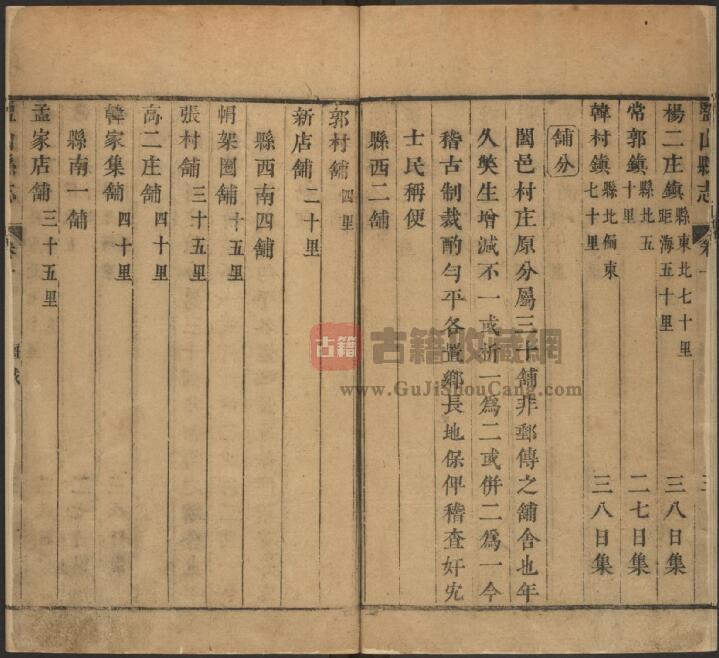 鹽山縣志
楊二庄鎮 縣東北七十里 距海五十里 三八日集
常郭鎮 縣北五十里 二七日集
韓村鎮 縣北偏東七十里 三八日集
舖分
闔邑村庄原分屬三十舖非郵傳之舖舍也年
久弊生增減不一或析一為二或併二為一今
稽古制裁酌勻平各置鄉長地保俾稽查奸宄
士民稱便
縣西二舖
郭村舖 四里
新店舖 二十里
縣西南四舖
帽架圈舖 十五里
張村舖 三十五里
高二庄舖 四十里
韓家集舖 四十里
縣南一舖
孟家店舖 三十五里
古籍
古籍收藏網
www.GuJiShouCang.com